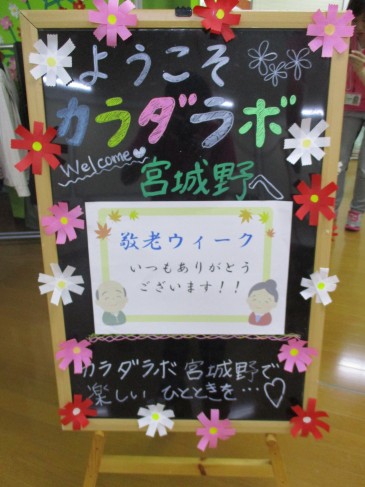 ようこそ
カラダラボ
Welcome
宮城野へ
敬老ウィーク
いつもありがとう
ございます!!
カラダラボ宮城野で
楽しいひとときを…♡